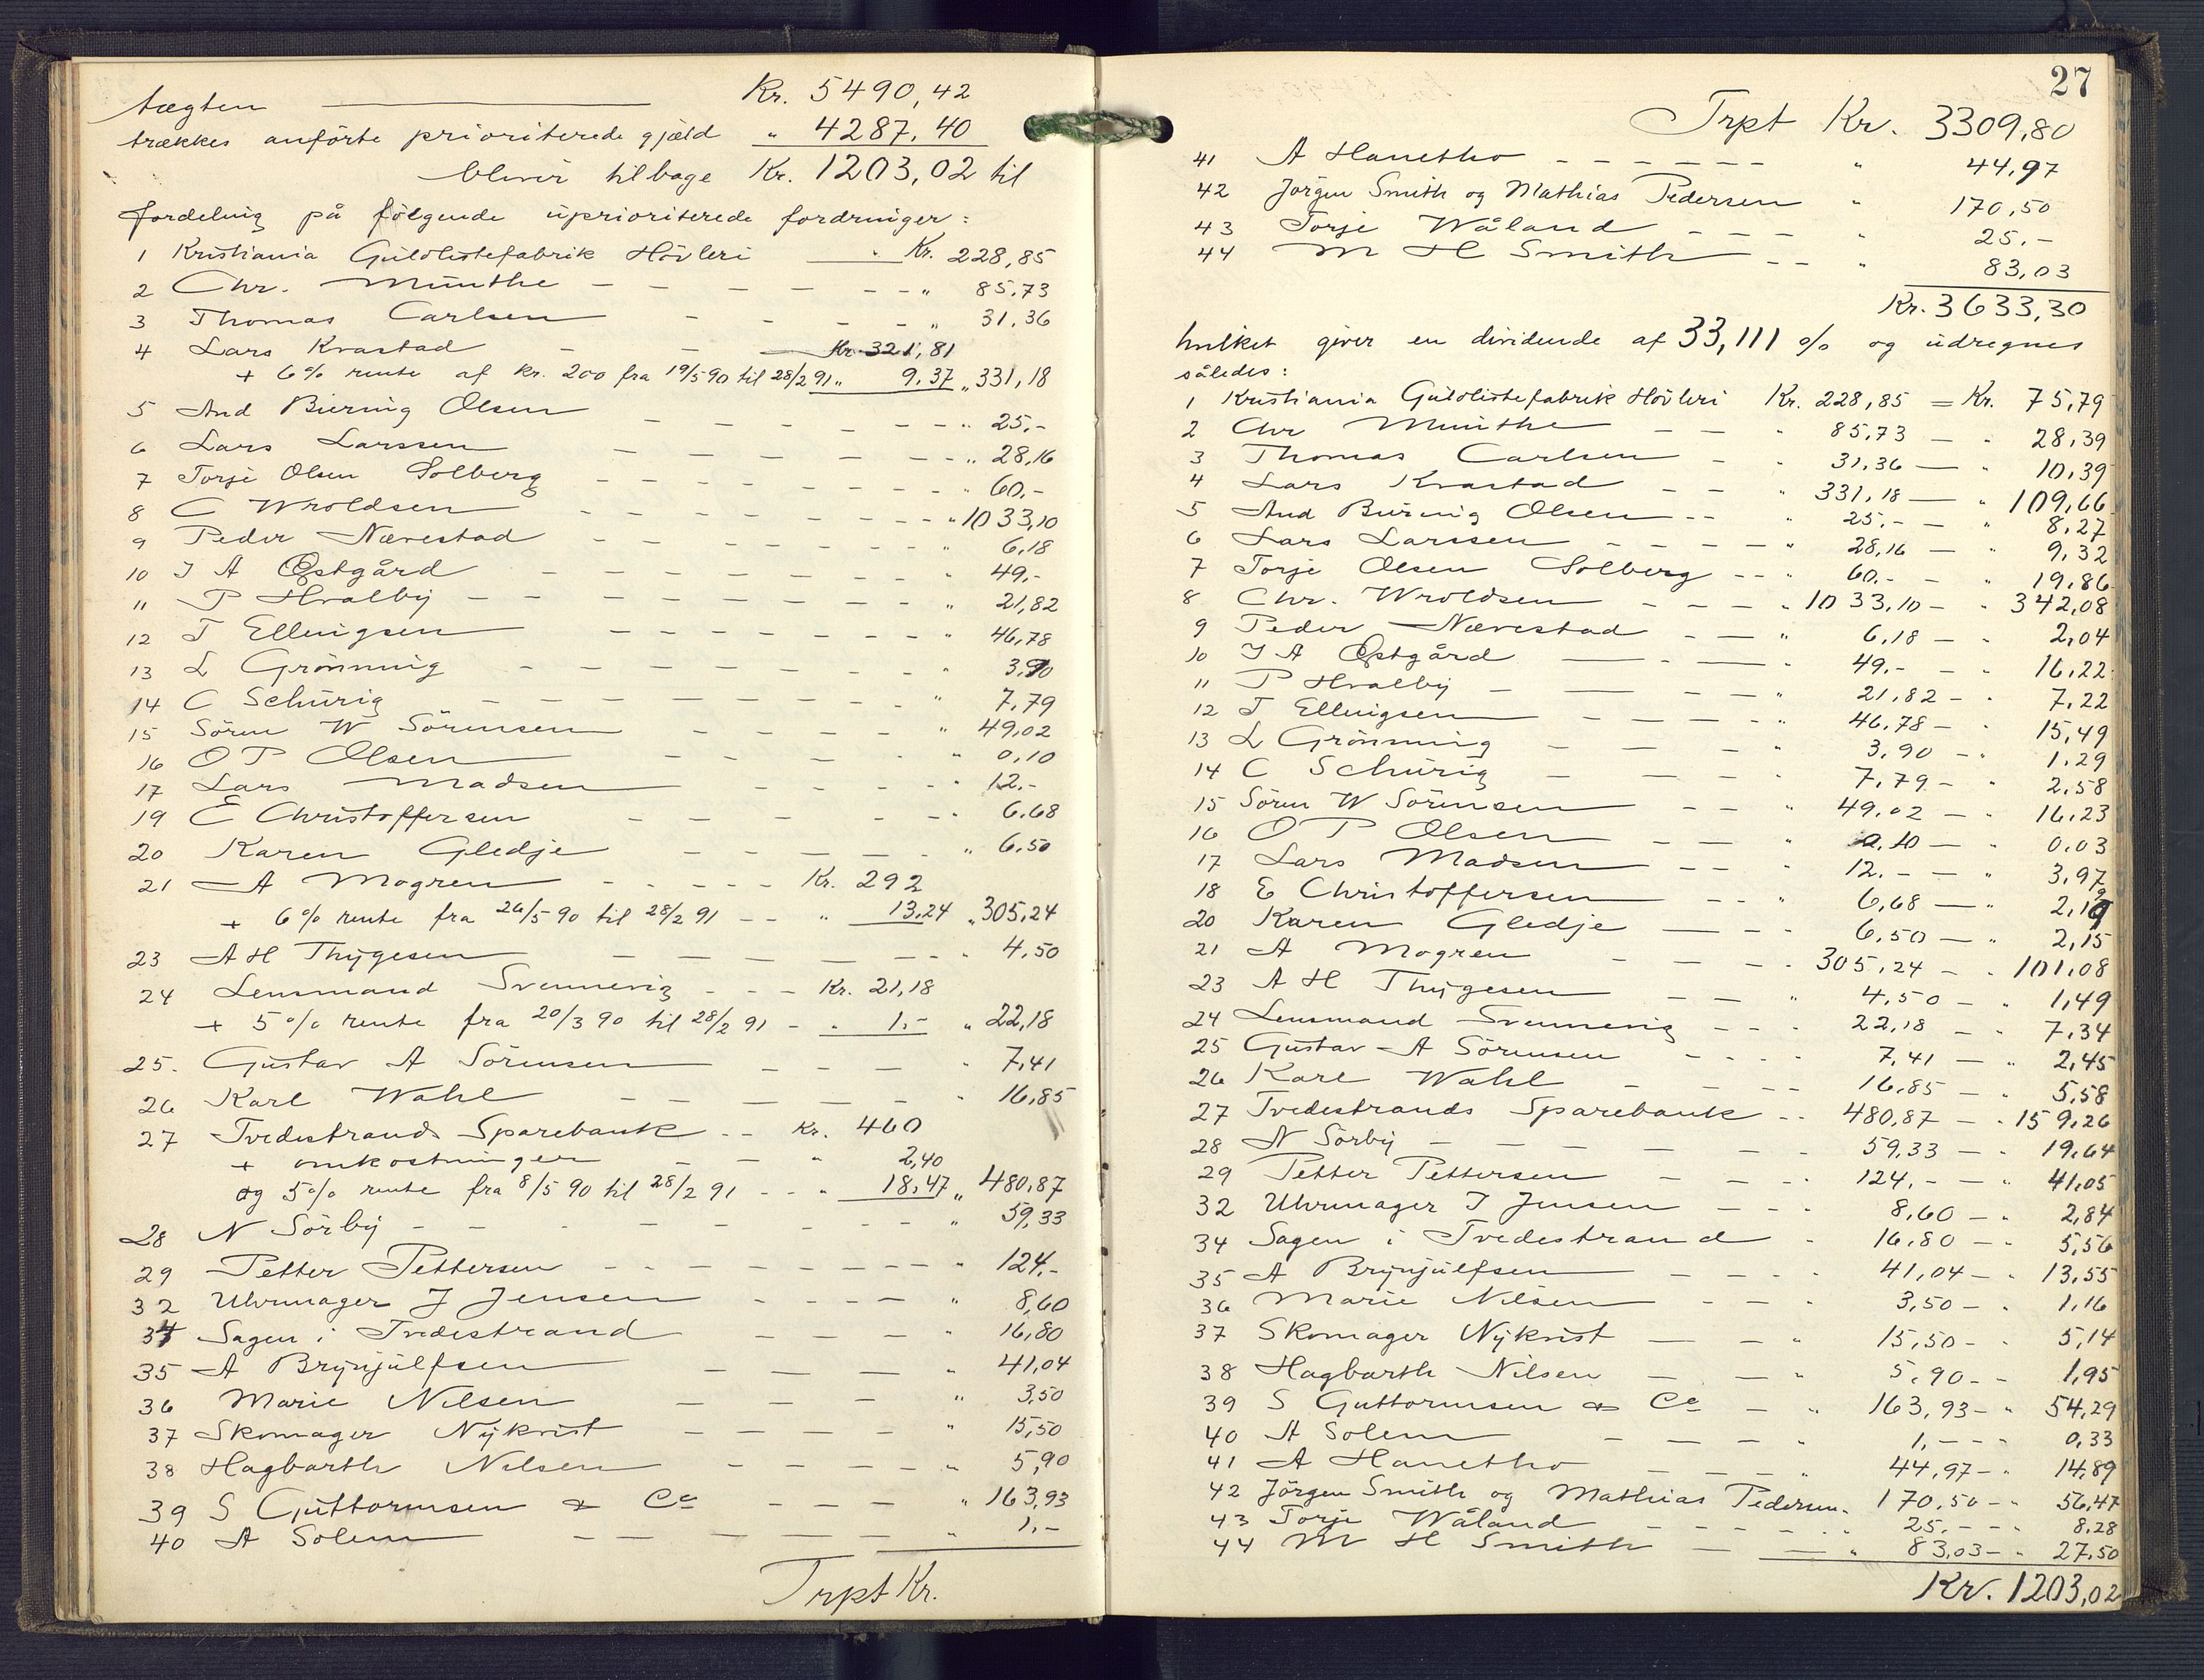 tægten Kr. 5490,42
trækkes anførte prioriterede gjæld " 4287,40
bliver tilbage Kr. 1203,02 til
fordeling på følgende uprioriterede fordringer:
1 Kristiania Guldlistefabrik Høvleri " Kr. 228,85
2 Chr. Munthe " 85,73
3 Thomas Carlsen " 31,36
4 Lars Kvastad Kr. 321,81
+ 6% rente af kr. 200 fra 19/5 90 til 28/2 91 " 9,37 " 331,18
5 And Buring Olsen " 25,-
6 Lars Larssen " 28,16
7 Torje Olsen Solberg " 60,-
8 C Wroldsen " 1033,10
9 Peder Nævestad " 6,18
10 J A Østgård " 49,-
11 P Hvalby " 21,82
12 T Ellingsen " 46,78
13 L Grønning " 3,90
14 C Schurig " 7,79
15 Sören W Sörensen " 49,02
16 O P Olsen " 0,10
17 Lars Madsen " 12.-
19 E Christoffersen " 6,68
20 Karen Gledje " 6,50
21 A Mogren Kr. 292
+ 6% rente fra 26/5 90 til 28/2 91 " 13,24 " 305,24
23 A H Thygesen " 4,50
24 Lensmand Svennevig Kr. 21,18
+ 5% rente fra 20/3 90 til 28/2 91 - " 1,- " 22,18
25. Gustav A Sörensen " 7,41
26 Karl Wahl " 16,85
27 Tvedestrands Sparebank Kr. 460
+ omkostninger " 2,40
og 5% rente fra 8/5 90 til 28/2 91 " 18,47 " 480,87
28 N Sörby " 59,33
29 Petter Pettersen " 124,-
32 Uhrmager J Jensen " 8,60
34 Sagen i Tvedestrand " 16,80
35 A Brynjulfsen " 41,04
36 Marie Nilsen " 3,50
37 Skomager Nykvist " 15,50
38 Hagbarth Nilsen " 5,90
39 S Guttormsen & Co " 163,93
40 A Solem " 1,-
Trpt Kr.
27
Trpt Kr. 3309,80
41 A Hanetho " 44,97
42 Jørgen Smith og Mathias Pedersen " 170,50
43 Torje Wåland " 25.-
44 M H Smith " 83,03
Kr. 3633,30
hvilket giver en dividende af 33,111 % og udregnes
således:
1 Kristiania Guldlistefabrik Høvleri Kr. 228,85 = Kr. 75,79
2 Chr Munthe " 85,73 — " 28,39
3 Thomas Carlsen " 31,36 — " 10,39
4 Lars Kvastad " 331,18 — " 109,66
5 And Buring Olsen " 25.- — " 8,27
6 Lars Larssen " 28,16 — " 9,32
7 Torje Olsen Solberg " 60.- - " 19,86
8 Chr. Wroldsen " 1033,10 - " 342,08
9 Peder Nævestad " 6,18 — " 2,04
10 J A Østgård " 49.- — " 16,22
11 P Hvalby " 21,82 - " 7,22
12 T Ellingsen " 46,78 - " 15,49
13 L Grønning " 3,90 - " 1,29
14 C Schurig " 7,79 - " 2,58
15 Sören W Sörensen " 49,02 — " 16,23
16 O P Olsen " 0,10 — " 0,03
17 Lars Madsen " 12.- — " 3,97
18 E Christoffersen " 6,68 — " 2,19
20 Karen Gledje " 6,50 — " 2,15
21 A Mogren " 305,24 - " 101,08
23 A H Thygesen " 4,50 - " 1,49
24 Lensmand Svennevig " 22,18 - " 7,34
25 Gustav A Sörensen " 7,41 — " 2,45
26 Karl Wahl " 16,85 - " 5,58
27 Tvedestrands Sparebank " 480,87 - " 159,26
28 N Sörby " 59,33 - " 19,64
29 Petter Pettersen " 124.- — " 41,05
32 Uhrmager J Jensen " 8,60 — " 2,84
34 Sagen i Tvedestrand " 16,80 - " 5,56
35 A Brynjulfsen " 41,04 - " 13,55
36 Marie Nilsen " 3,50 - " 1,16
37 Skomager Nykvist " 15,50 - " 5,14
38 Hagbarth Nilsen " 5,90 - " 1,95
39 S Guttormsen & Co " 163,93 - " 54,29
40 A Solem " 1,- - " 0,33
41 A Hanetho " 44,97 - " 14,89
42 Jørgen Smith og Mathias Pedersen " 170,50 - " 56,47
43 Torje Wåland " 25.- - " 8,28
44 M H Smith " 83,03 - " 27,50
Kr. 1203,02